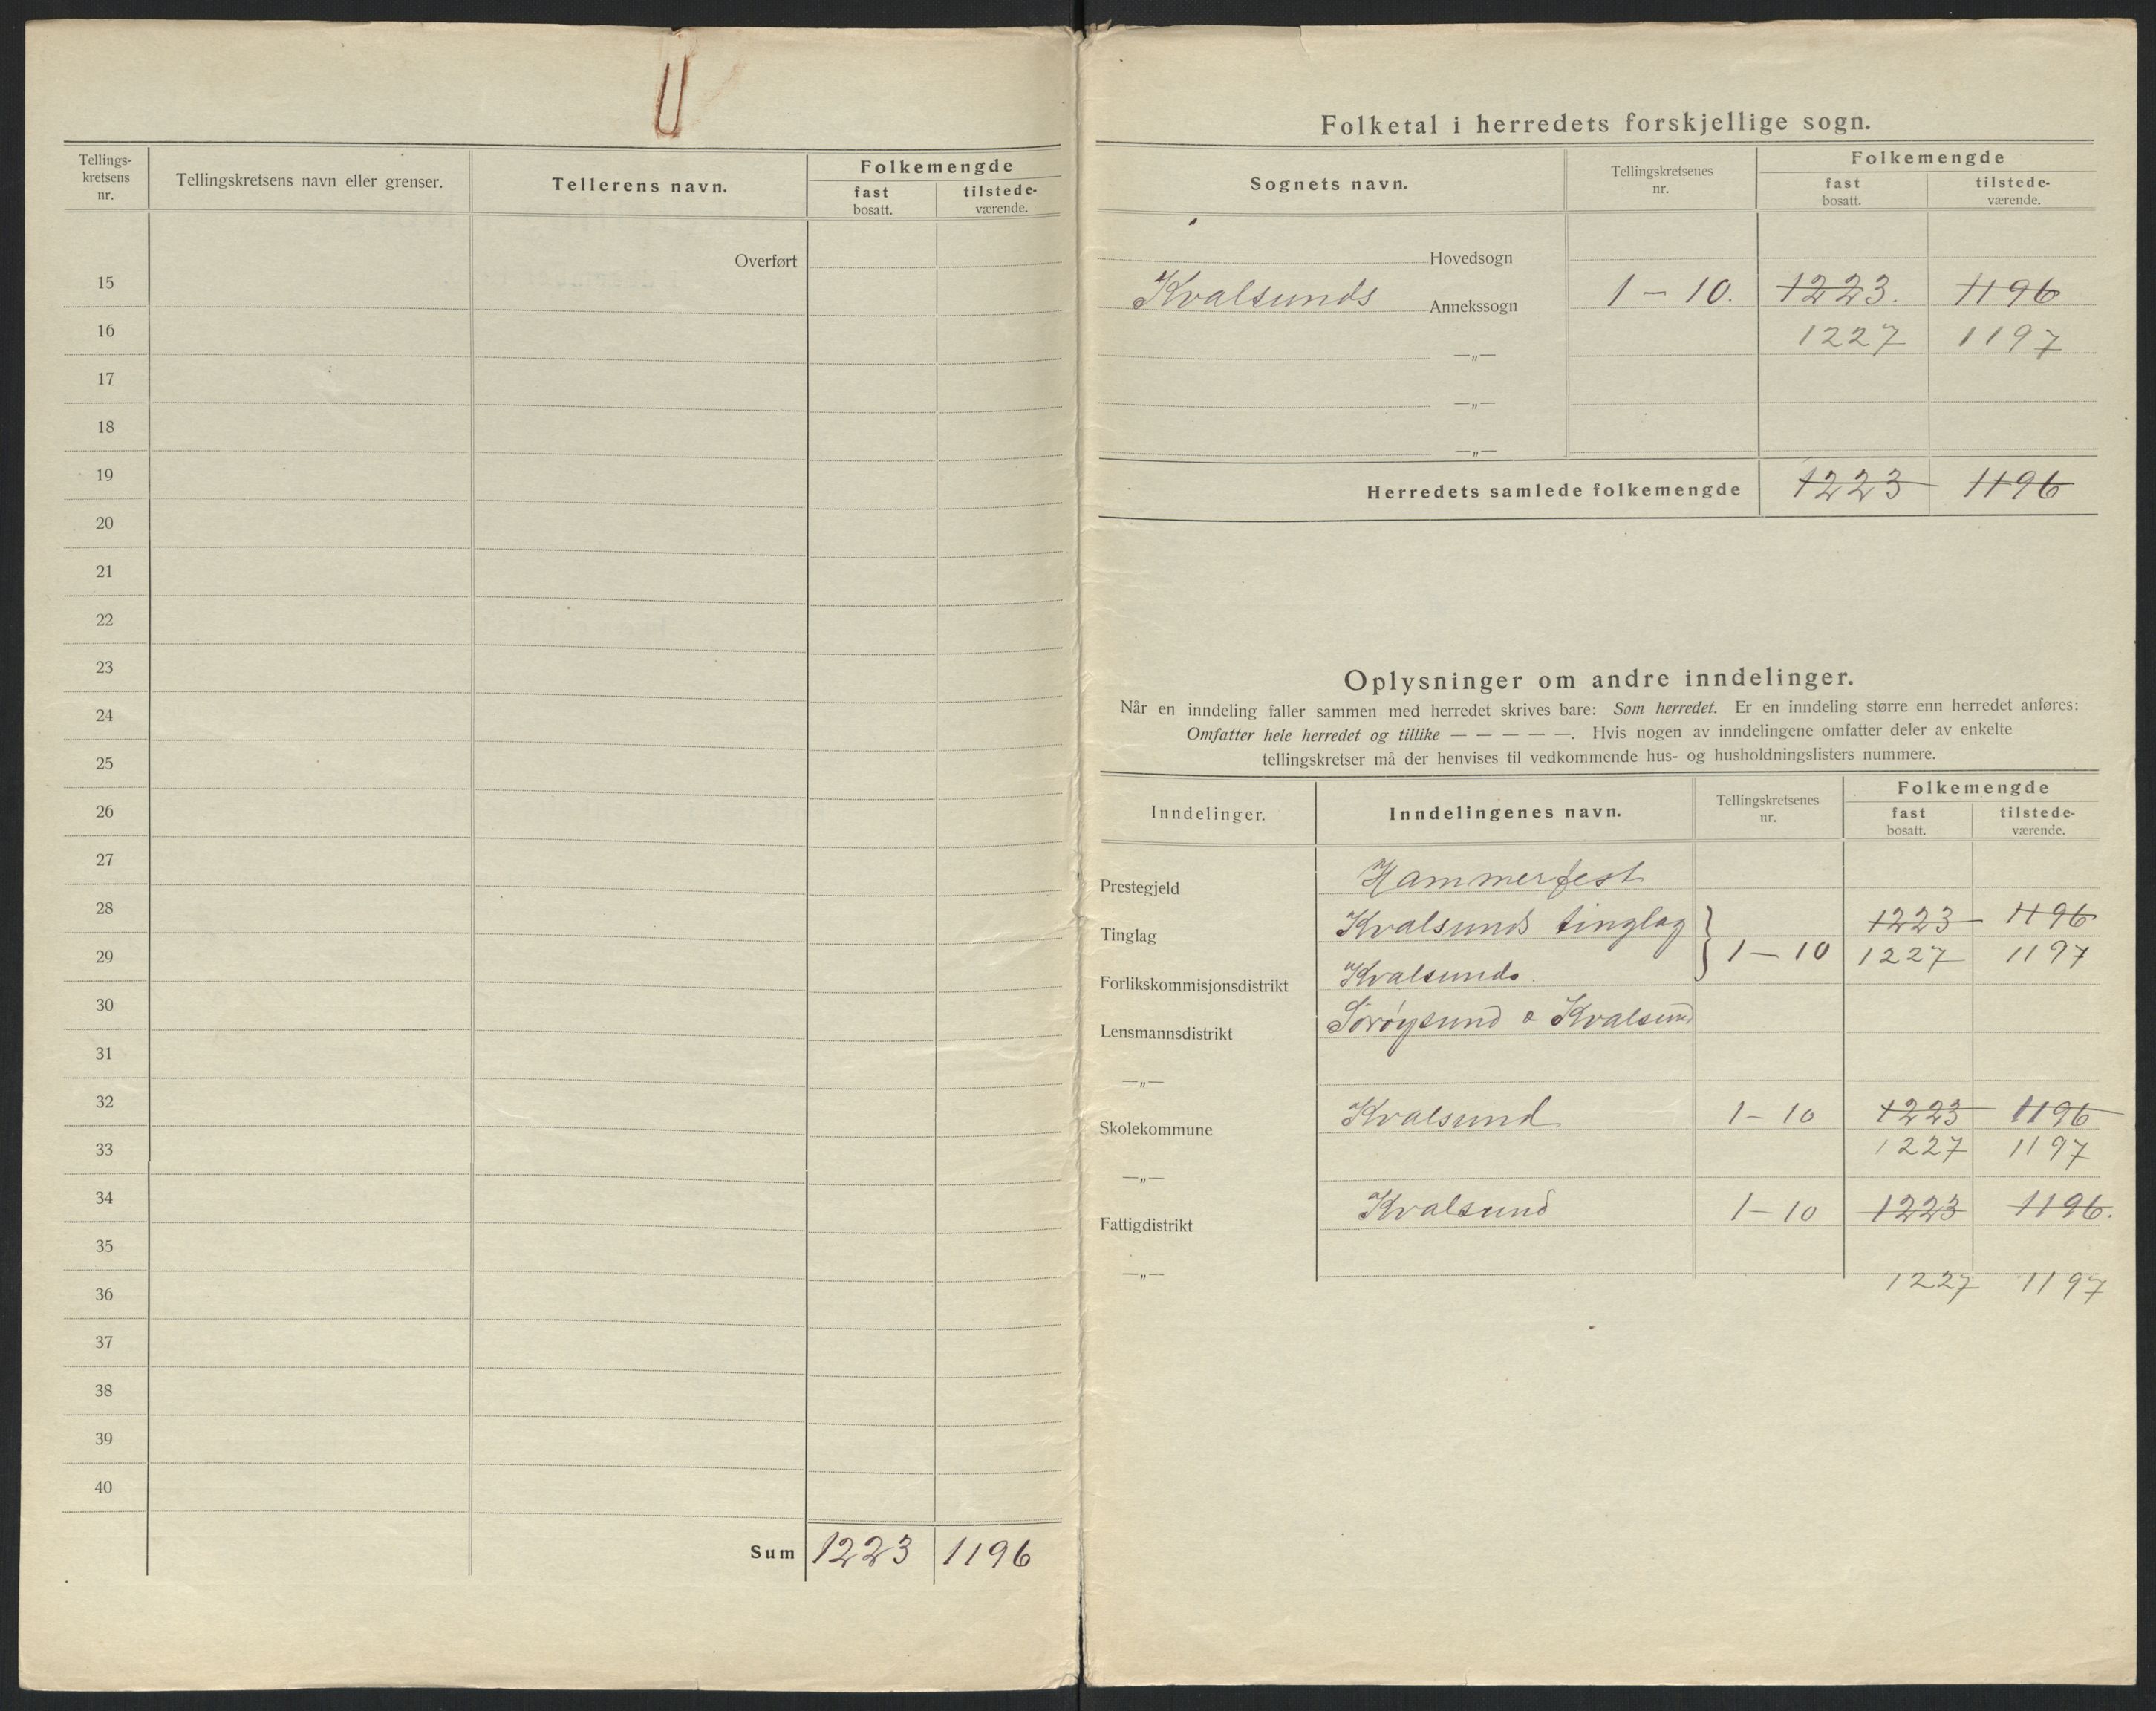 Tellings-
kretsens
nr.
Tellingskretsens navn eller grenser.
Tellerens navn.
Folkemengde
fast
bosatt.
tilstede-
værende.
Overført
15
16
17
18
19
20
21
22
23
24
25
26
27
28
29
30
31
32
33
34
35
36
37
38
39
40
Sum 1223 1196
Folketal i herredets forskjellige sogn.
Sognets navn.
Tellingskretsenes
nr.
Folkemengde
fast
bosatt.
tilstede-
værende.
Hovedsogn
Kvalsunds Annekssogn 1 - 10. 1223. 1196
—„— 1227 1197
—„—
—„—
Herredets samlede folkemengde 1223 1196
Oplysninger om andre inndelinger.
Når en inndeling faller sammen med herredet skrives bare: Som herredet. Er en inndeling større enn herredet anføres:
Omfatter hele herredet og tillike — — — — —. Hvis nogen av inndelingene omfatter deler av enkelte
tellingskretser må der henvises til vedkommende hus- og husholdningslisters nummere.
Inndelinger.
Inndelingenes navn.
Tellingskretsenes
nr.
Folkemengde
fast
bosatt.
tilstede-
værende.
Prestegjeld Hammerfest
Tinglag Kvalsunds tinglag } 1223 1196
1 - 10 1227 1197
Forlikskommisjonsdistrikt Kvalsunds.
Lensmannsdistrikt Sørøysund o Kvalsund
—„—
Skolekommune Kvalsund 1 - 10 1223 1196
1227 1197
—„—
Fattigdistrikt Kvalsund 1 - 10 1223 1196.
—„—
1227 1197